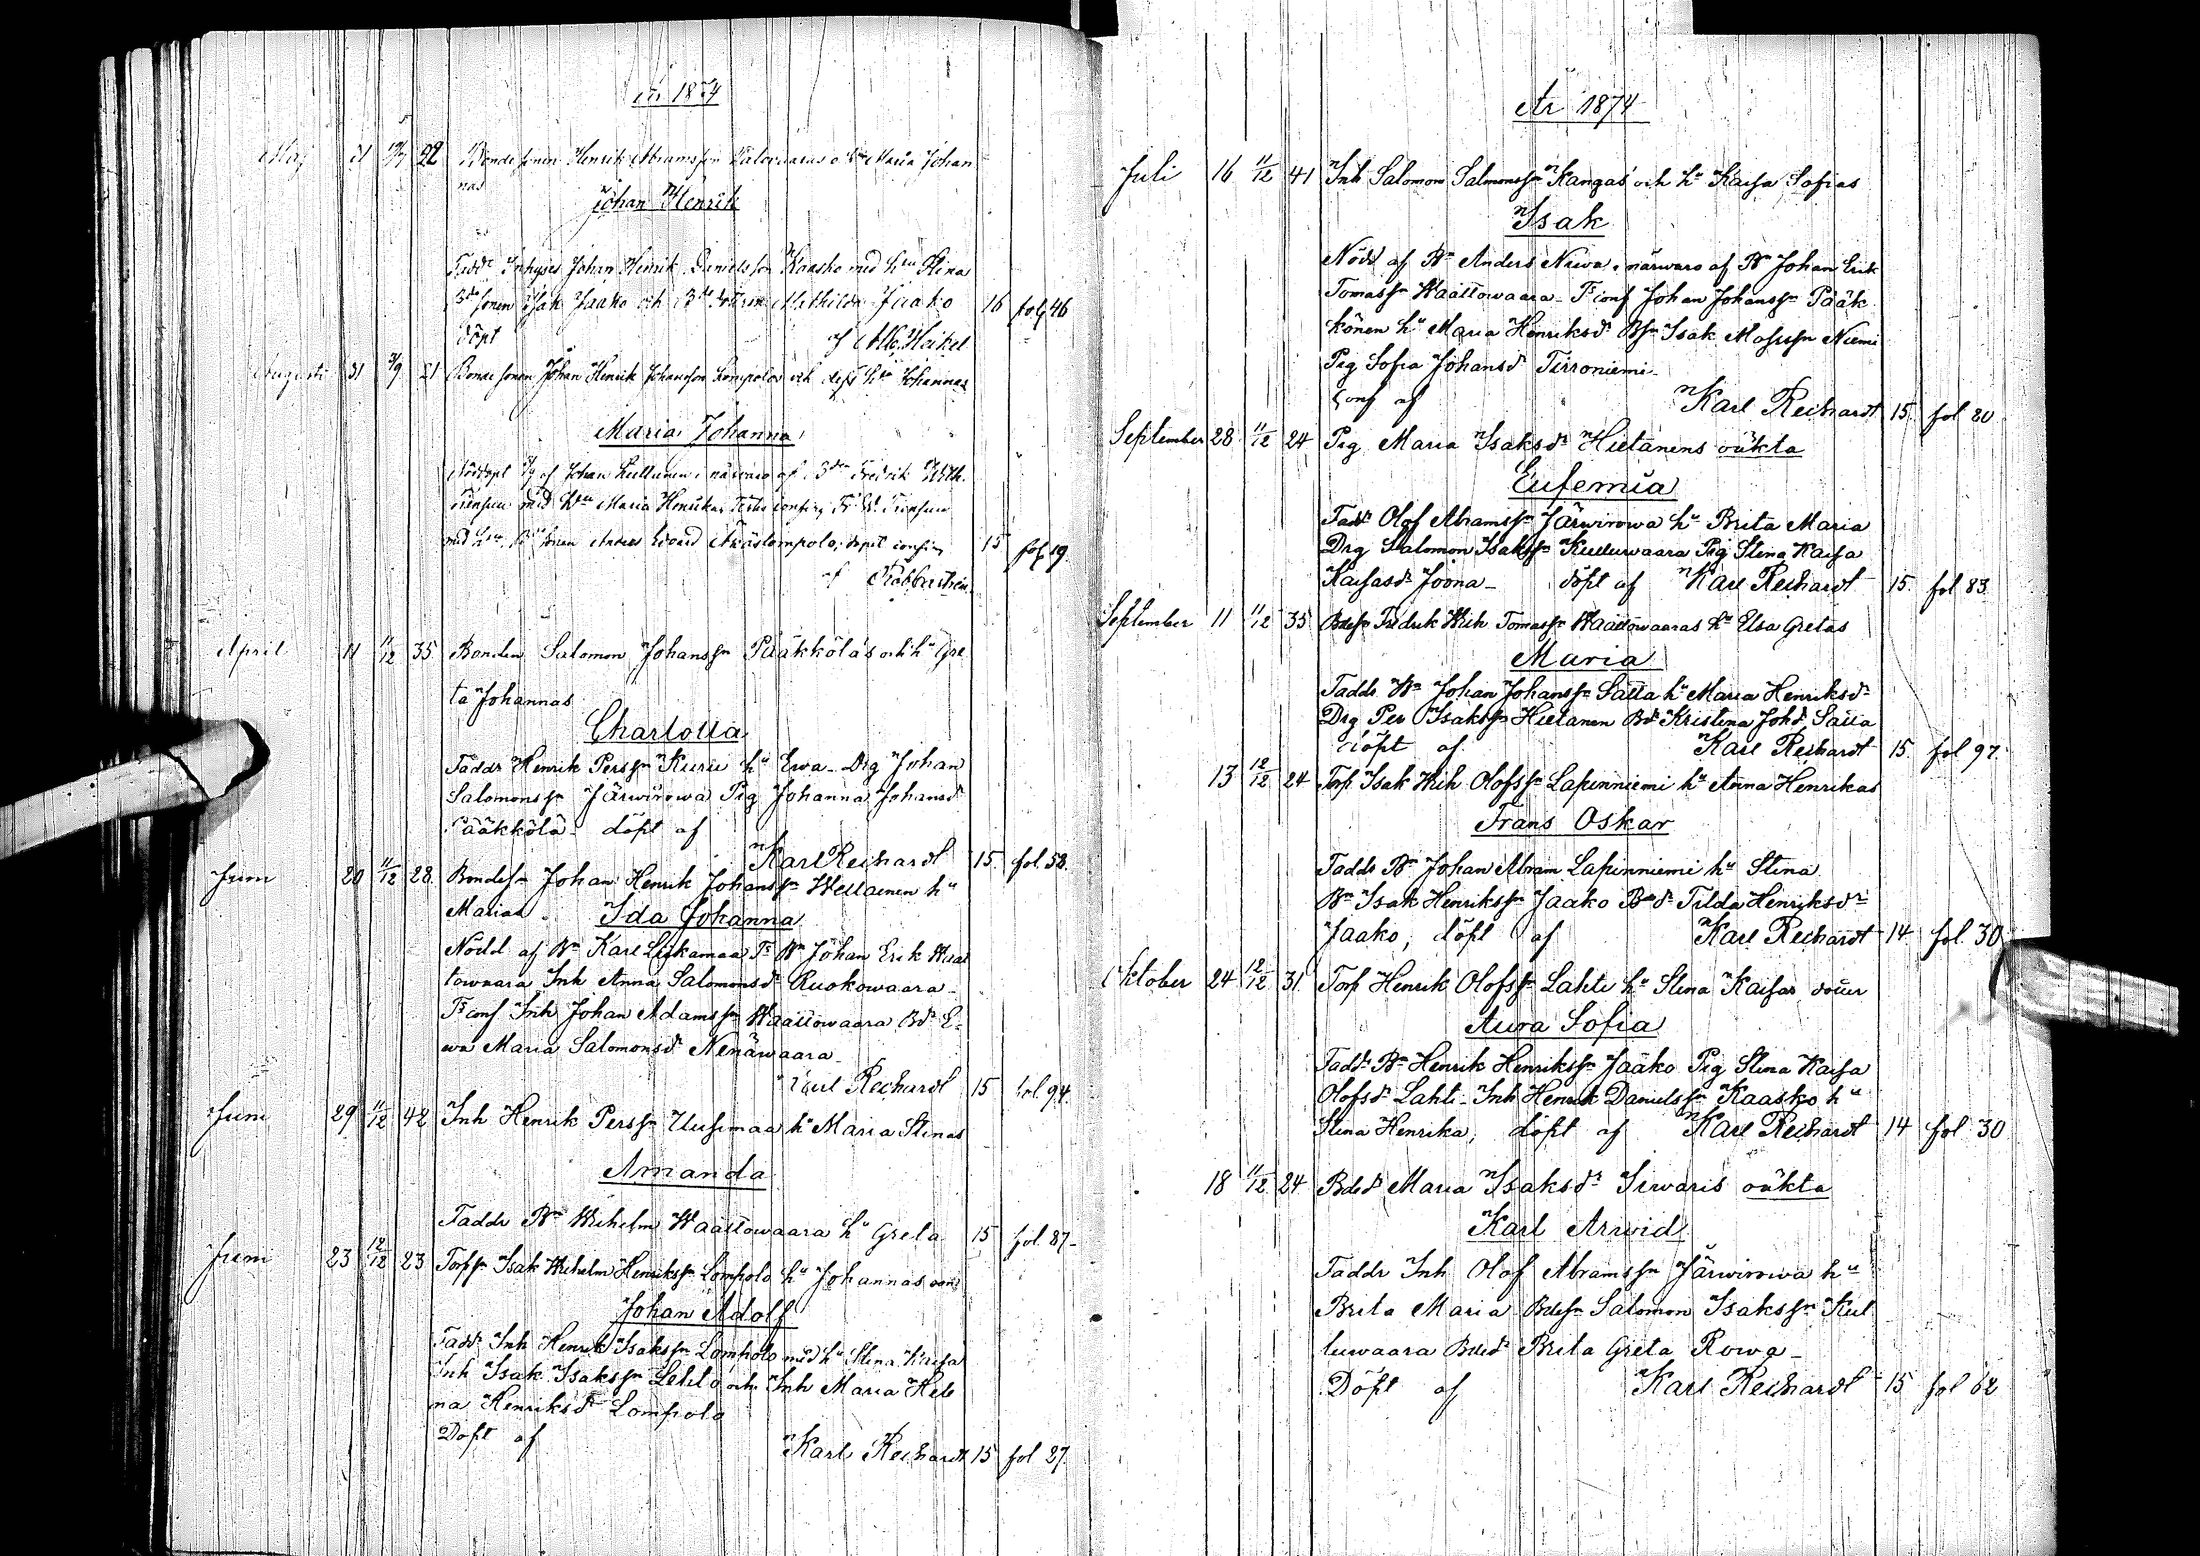 År 1874
Maj 21 22 Bondesonen Henrik Abramsson och Maria Johan
nas
Johan Henrik
Faddr Inhyses Johan Henrik Danielsson Kaasko med hu Stina
sonen Isak Jaako och Mathilda Jaako 16 fol 46
döpt af Heikel
Augusti 31 3/9 21 Bondesonen Johan Henrik Johansson Lompolos och dess hu Johannas
Maria Johanna
Nöddöpt af Johan i närvaro af Fredrik
med Maria Henrika
med sonen Anders Edvard Äkäslompolo, 15 fol 19.
af
April 11 11/12 35 Bonden Salomon Johanssn Pääkkölä's och hu Gre
ta Johannas
Charlotta
Faddr Henrik Perssn Kuru hu Ewa - Drg Johan
Salomonssn Järwirowa Pig Johanna Johansdr
Pääkkölä - döpt af
Karl Reichardt 15. fol 58.
Juni 20 11/12 28. Bondesn Johan Henrik Johanssn Wellainen hu
Marias Ida Johanna
Nödd af Bn Karl Liikamaa Fr Bn Johan Erik Waat
towaara Inh Anna Salomonsdr Ruokowaara -
Fr conf Inh Johan Adamssn Waattowaara Bdr E-
wa Maria Salomonsdr Nenäwaara -
Karl Reichardt 15 fol 94.
Juni 29 11/12 42 Inh Henrik Perssn Uusimaa hu Maria Stinas
Amanda
Faddr Bn Wilhelm Waattowaara hu Greta 15 fol 87 -
Juni 23 12/12 23 Torpsn Isak Wilhelm Henrikssn Lompolo hu Johannas
Johan Adolf
Faddr Inh Henrik Isakssn Lompolo med hu Stina Kaisa
Inh Isak Isakssn Lehto och Inh Maria Hele
na Henriksdr Lompolo
Döpt af
Karl Reichardt 15 fol 27.
År 1874
Juli 16 11/12 41 Inh Salomon Salmonssn Kangas' och hu Kaisa Sofias
Isak
Nödd af Bn Anders Niwa i närwaro af Bn Johan Erik
Tomassn Waattowaara - Fr conf Johan Johanssn Pääk
könen hu Maria Henriksdr Bsn Isak Matssn Niemi
Pig Sofia Johansd Tirroniemi -
Conf af Karl Reichardt 15. fol 20
September 28 11/12 24 Pig Maria Isaksdr Hietanens oäkta
Eufemia
Faddr Olof Abramssn Järwirowa hu Brita Maria
Drg Salomon Isakssn Kuluwaara Pig Stina Kaisa
Kaisasdr Joona - döpt af Karl Reichardt 15. fol 83.
September 11 11/12 35 Bdesn Fredrik Wilh Tomassn Waattowaaras hu Elsa Gretas
Maria
Faddr Bn Johan Johanssn Salla hu Maria Henriksdr
Drg Per Isakssn Hietanen Bdr Kristina Johdr Salla
döpt af Karl Reichardt 15 fol 97.
13 12/12 24 Torp Isak Wilh Olofssn Lapinniemi hu Anna Henrikas
Frans Oskar
Faddr Bn Johan Abram Lapinniemi hu Stina
Bn Isak Henrikssn Jaako Bdr Tilda Henriksdr
Jaako, döpt af Karl Reichardt 14 fol. 30
Oktober 24 12/12 31 Torp Henrik Olofssn Lahti hu Stina Kaisas
Aura Sofia
Faddr Bn Henrik Henrikssn Jaako Pig Stina Kaisa
Olofsdr Lahti - Inh Henrik Danielssn Kaasko hu
Stina Henrika, döpt af Karl Reichardt 14 fol 30
18 11/12 24 Bdedr Maria Isaksdr Siwaris oäkta
Karl Arwid
Faddr Inh Olof Abramssn Järwirowa hu
Brita Maria Bdesn Salomon Isakssn Kul
luwaara Bdedr Brita Greta Rowa -
Döpt af Karl Reichardt 15 fol 62